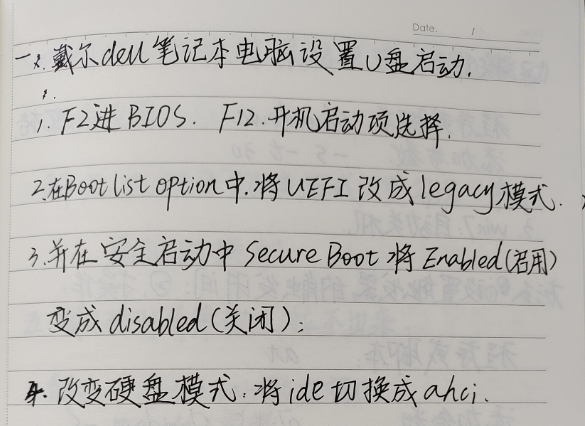 Date. /
一、戴尔dell笔记本电脑设置U盘启动.
1. F2进BIOS. F12.开机启动项选择.
2.在Boot list option中.将UEFI改成legacy模式.
3.并在安全启动中Secure Boot将Enabled(启用)
变成disabled(关闭);
4.改变硬盘模式.将ide切换成ahci.